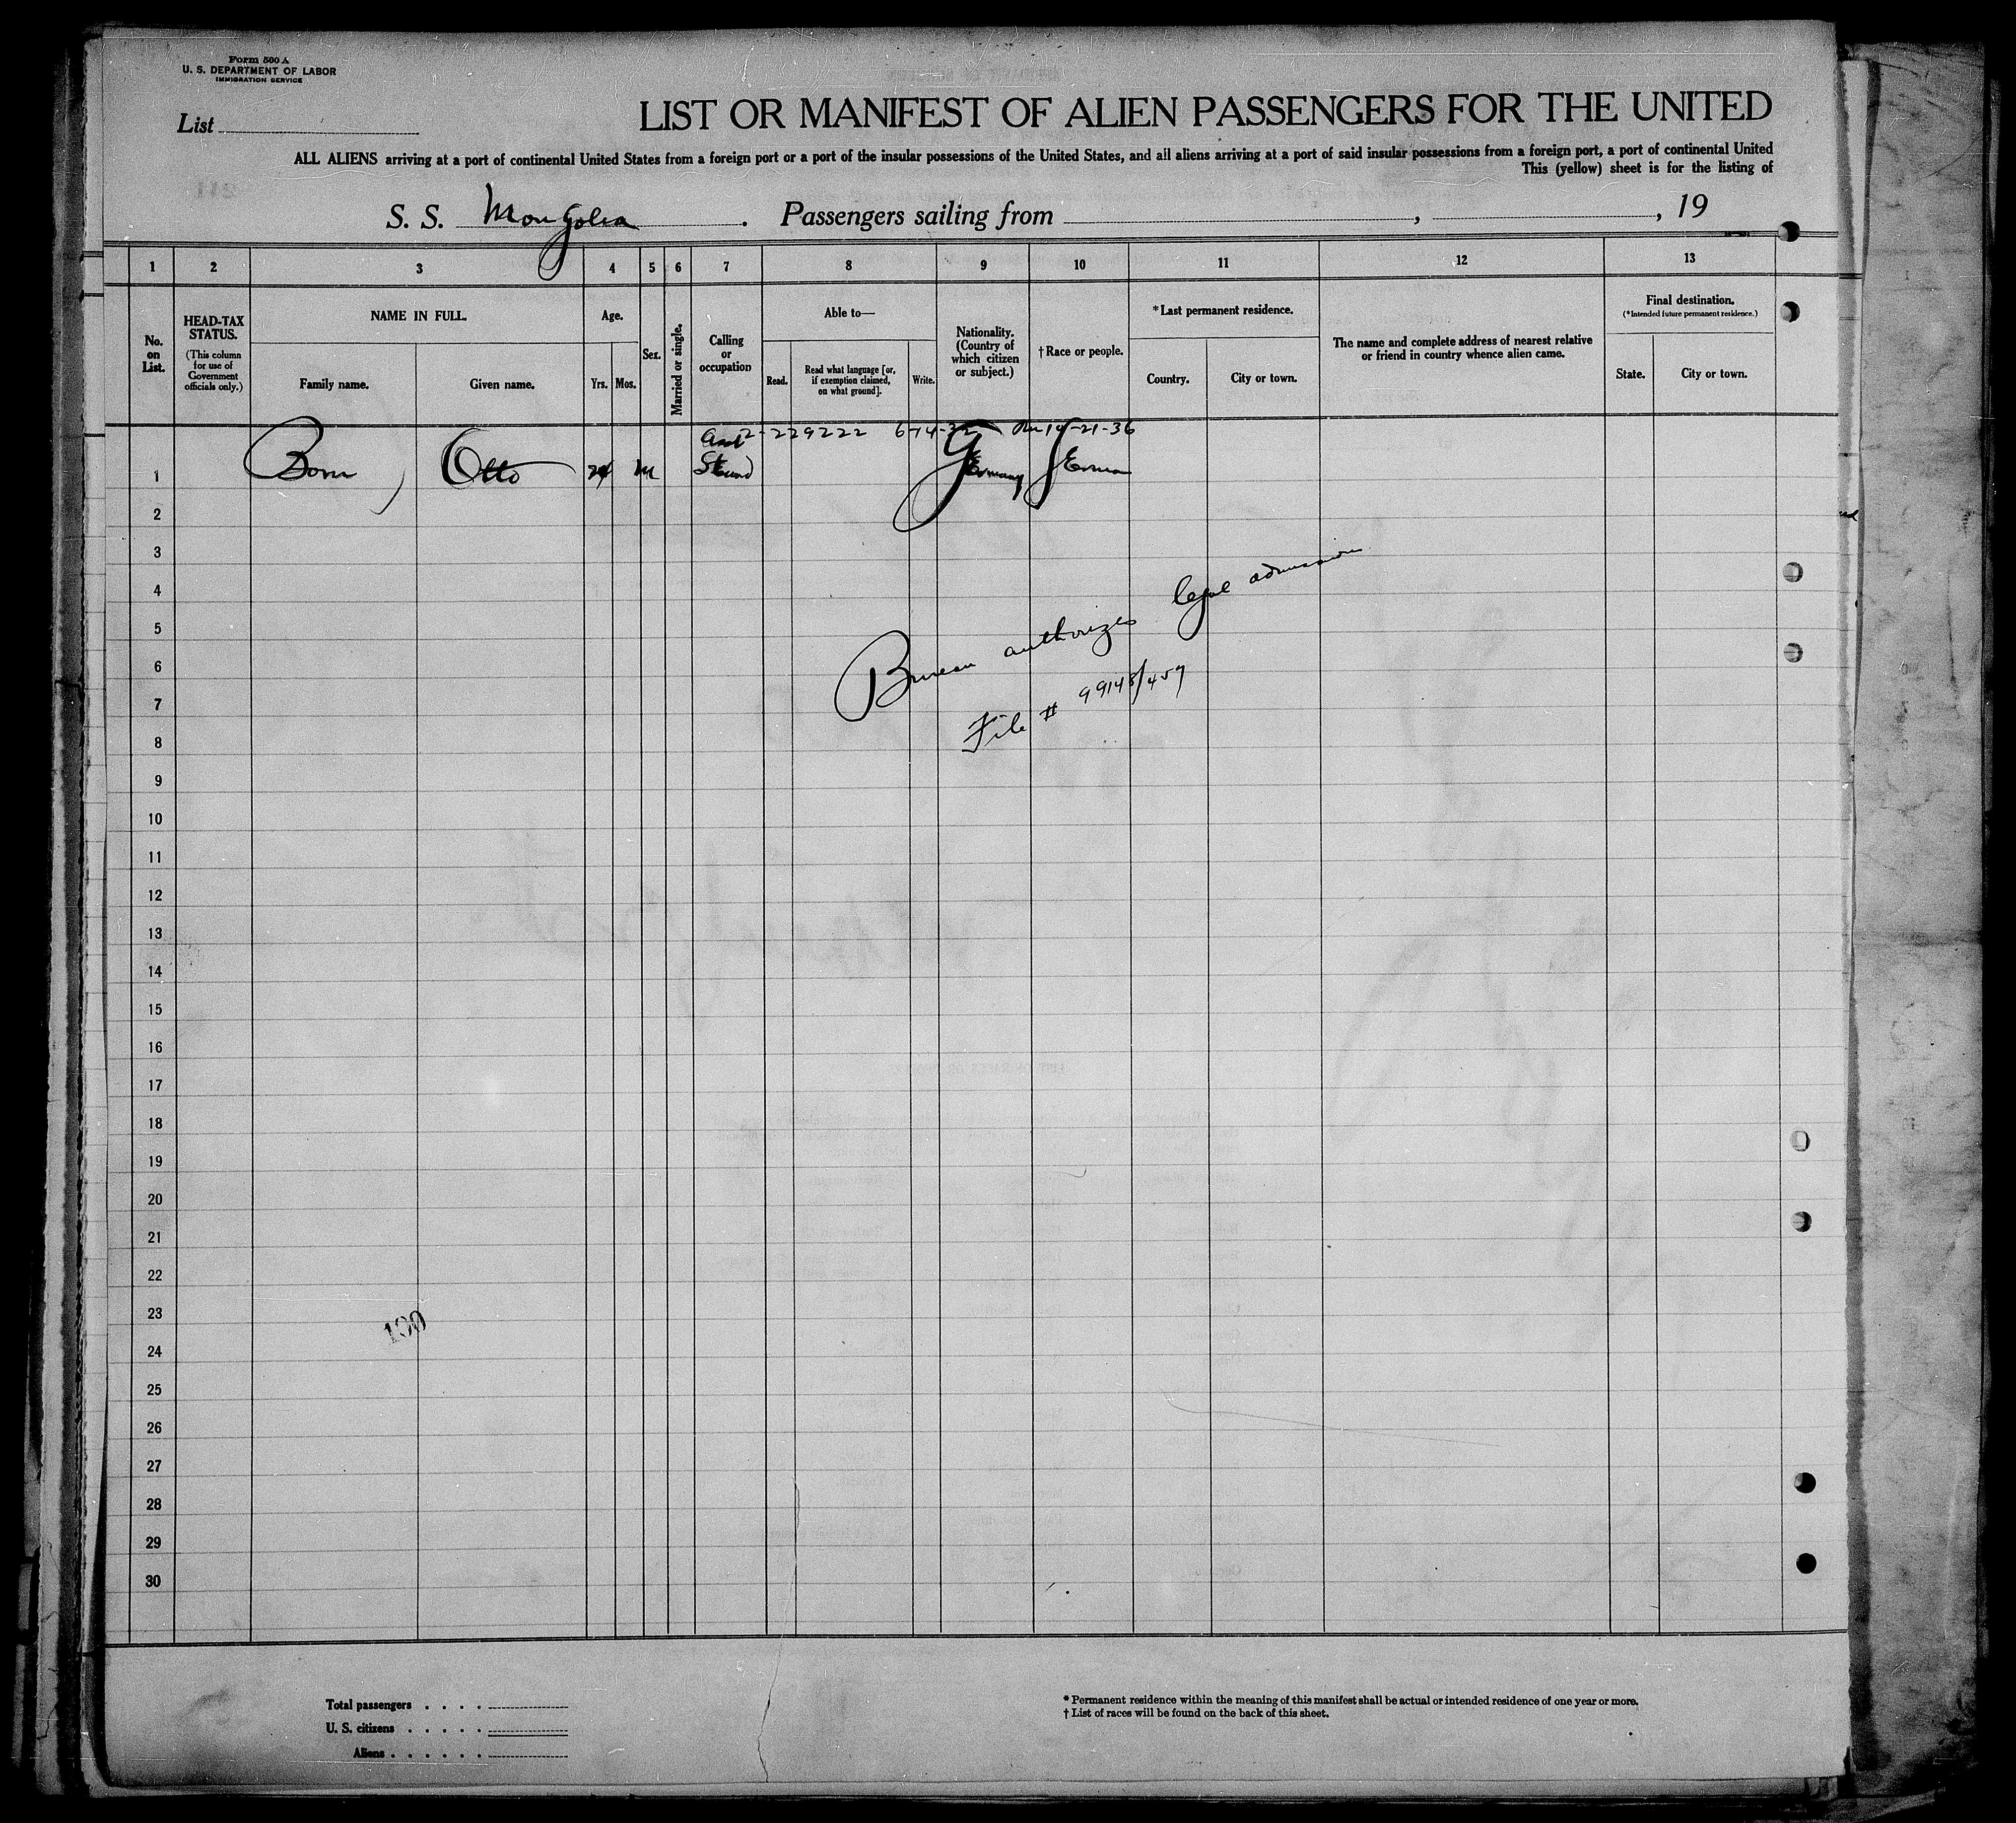 Form 500 A
U. S. DEPARTMENT OF LABOR
IMMIGRATION SERVICE
List
LIST OR MANIFEST OF ALIEN PASSENGERS FOR THE UNITED
ALL ALIENS arriving at a port of continental United States from a foreign port or a port of the insular possessions of the United States, and all aliens arriving at a port of said insular possessions from a foreign port, a port of continental United
This (yellow) sheet is for the listing of
S. S. Mongolia. Passengers sailing from , , 19
1 2 3 4 5 6 7 8 9 10 11 12 13
No. on List.
HEAD-TAX STATUS.
(This column for use of Government officials only.)
NAME IN FULL.
Family name.
Given name.
Age.
Yrs.
Mos.
Sex.
Married or single.
Calling or occupation
Able to—
Read.
Read what language [or, if exemption claimed, on what ground].
Write.
Nationality. (Country of which citizen or subject.)
†Race or people.
*Last permanent residence.
Country.
City or town.
The name and complete address of nearest relative or friend in country whence alien came.
Final destination.
(*Intended future permanent residence.)
State.
City or town.
2-229222 6-14-32 14-21-36
1 Born, Otto 24 M Germany German
2
3
4
Bureau authorizes legal admission
5
6
7
File # 99148/457
8
9
10
11
12
13
14
15
16
17
18
19
20
21
22
23
190
24
25
26
27
28
29
30
Total passengers . . . .
U. S. citizens . . . . .
Aliens . . . . . .
* Permanent residence within the meaning of this manifest shall be actual or intended residence of one year or more.
† List of races will be found on the back of this sheet.